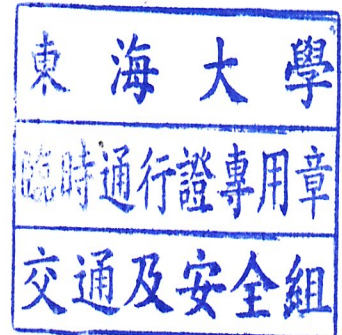 東海大學
臨時通行證專用章
交通及安全組